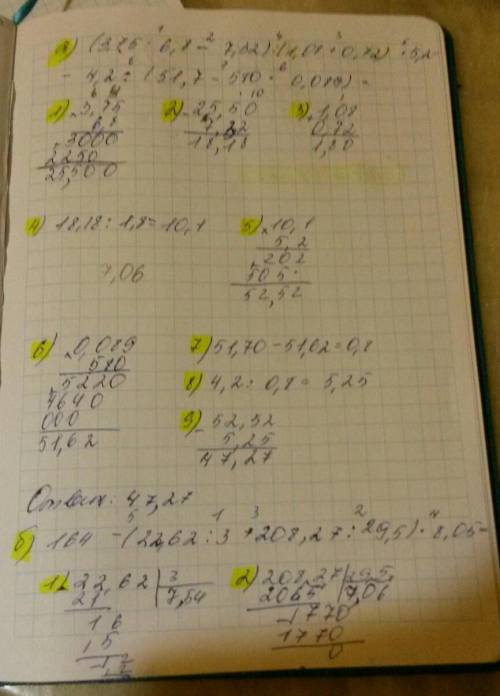 а) (3,75 · 6,8 - 7,32) : (1,08 + 0,72) · 5,2 -
- 4,2 : (51,7 - 580 · 0,089) =
1) 3,75
6,8
3000
2250
25,500
2) 25,50
7,32
18,18
3) 1,08
0,72
1,80
4) 18,18 : 1,8 = 10,1
7,06
5) 10,1
5,2
202
505
52,52
6) 0,089
580
5220
4640
000
51,62
7) 51,70 - 51,62 = 0,8
8) 4,2 : 0,8 = 5,25
9) 52,52
5,25
47,27
Ответ: 47,27
б) 164 - (22,62 : 3 + 208,27 : 29,5) · 8,05 =
1) 22,62 | 3
21 7,54
16
15
12
2) 208,27 | 29,5
2065 7,06
1770
1770
0